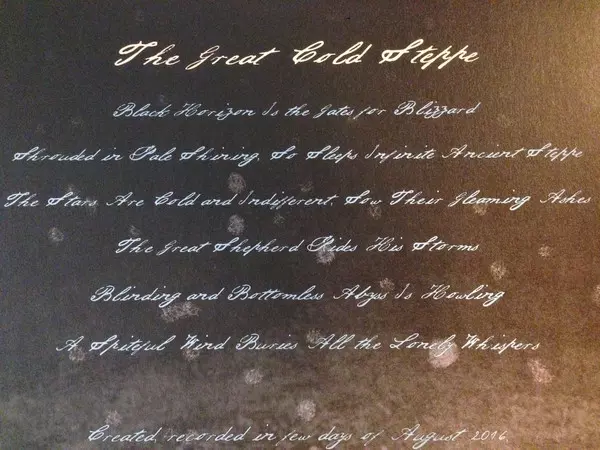 The Great Cold Steppe
Black Horizon Is the Gates for Blizzard
Shrouded in Pale Shining, So Sleeps Infinite Ancient Steppe
The Stars Are Cold and Indifferent, Sow Their Gleaming Ashes
The Great Shepherd Rides His Storms
Blinding and Bottomless Abyss Is Howling
A Spiteful Wind Buries All the Lonely Whispers
Created, recorded in few days of August 2016